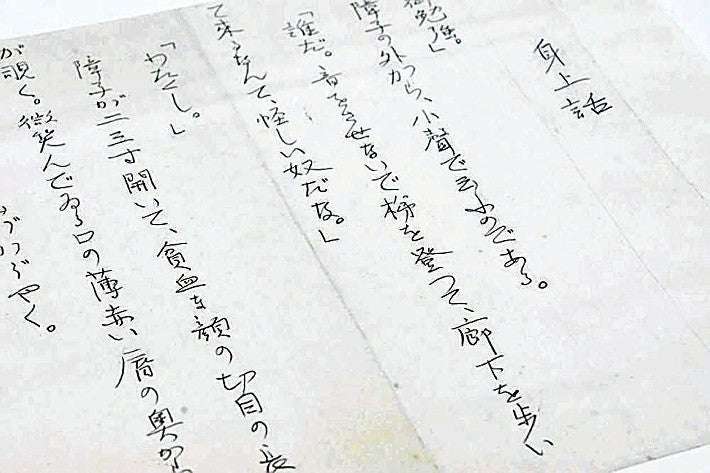 身上話
御勉強。」
障子の外から、小聲で云ふのである。
「誰だ。音をさせないで梯を登つて、廊下を歩い
て来るなんて、怪しい奴だな。」
「わたくし。」
障子が二三寸開いて、貧血な顔の切目の長
が覗く。微笑んでゐる口の薄赤い唇の奥から
つぶやく。